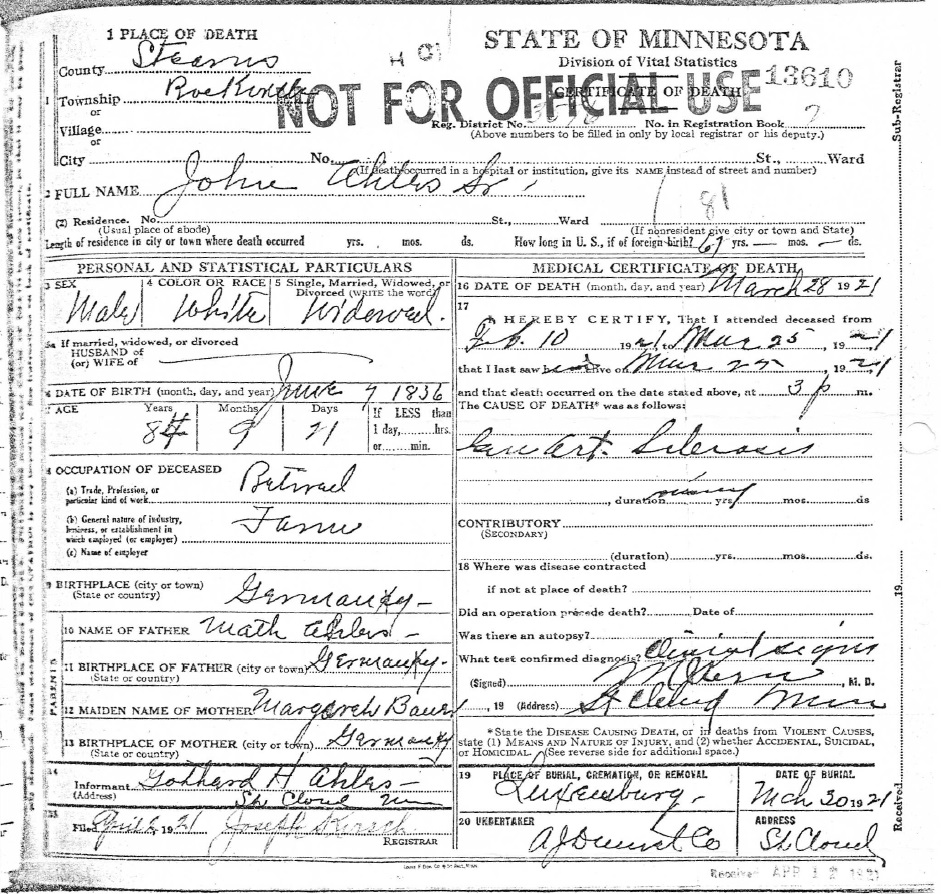 1 PLACE OF DEATH
STATE OF MINNESOTA
Division of Vital Statistics
CERTIFICATE OF DEATH
13610
County Stearns
Township
or
Village
or
NOT FOR OFFICIAL USE
Reg. District No. No. in Registration Book 7
(Above numbers to be filled in only by local registrar or his deputy.)
City No. St., Ward
(If death occurred in a hospital or institution, give its NAME instead of street and number)
2 FULL NAME John Ahles Sr.
81
(2) Residence. No. St., Ward
(Usual place of abode) (If nonresident give city or town and State)
Length of residence in city or town where death occurred yrs. mos. ds. How long in U. S., if of foreign birth? 67 yrs. — mos. — ds.
PERSONAL AND STATISTICAL PARTICULARS
3 SEX 4 COLOR OR RACE 5 Single, Married, Widowed, or Divorced (WRITE the word)
Male White Widowed.
5a If married, widowed, or divorced
HUSBAND of
(or) WIFE of
6 DATE OF BIRTH (month, day, and year) June 7 1836
7 AGE Years Months Days If LESS than
84 9 21 1 day, hrs.
or min.
8 OCCUPATION OF DECEASED
(a) Trade, Profession, or
particular kind of work Retired
(b) General nature of industry,
business, or establishment in
which employed (or employer) Farmer
(c) Name of employer
9 BIRTHPLACE (city or town)
(State or country) Germany —
PARENTS
10 NAME OF FATHER Math Ahles —
11 BIRTHPLACE OF FATHER (city or town) Germany —
(State or country)
12 MAIDEN NAME OF MOTHER Margareth Bauer
13 BIRTHPLACE OF MOTHER (city or town) Germany
(State or country)
14
Informant Gothard H Ahles —
(Address) St. Cloud Minn
15
Filed April 2 1921 Joseph Kirsch
REGISTRAR
MEDICAL CERTIFICATE OF DEATH
16 DATE OF DEATH (month, day, and year) March 28 1921
17
I HEREBY CERTIFY, That I attended deceased from
Feb. 10 1921 to Mar 25, 1921
that I last saw him alive on Mar 25, 1921
and that death occurred on the date stated above, at 3 p m.
The CAUSE OF DEATH* was as follows:
Gen Art. Sclerosis
, duration many yrs. mos. ds
CONTRIBUTORY
(SECONDARY)
(duration) yrs. mos. ds.
18 Where was disease contracted
if not at place of death?
Did an operation precede death? Date of
Was there an autopsy?
What test confirmed diagnosis? Clinical signs
(Signed) , M. D.
, 19 (Address) St Cloud Minn
*State the DISEASE CAUSING DEATH, or in deaths from VIOLENT CAUSES,
state (1) MEANS AND NATURE OF INJURY, and (2) whether ACCIDENTAL, SUICIDAL,
or HOMICIDAL. (See reverse side for additional space.)
19 PLACE OF BURIAL, CREMATION, OR REMOVAL DATE OF BURIAL
Luxemburg. Mch 30 1921
20 UNDERTAKER ADDRESS
St Cloud
Received APR 12 1921
Sub-Registrar
Received 19